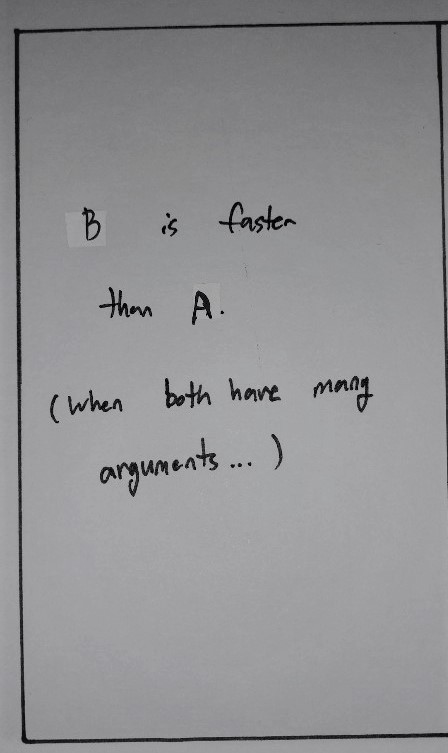 B is faster
than A.
(when both have many
arguments...)